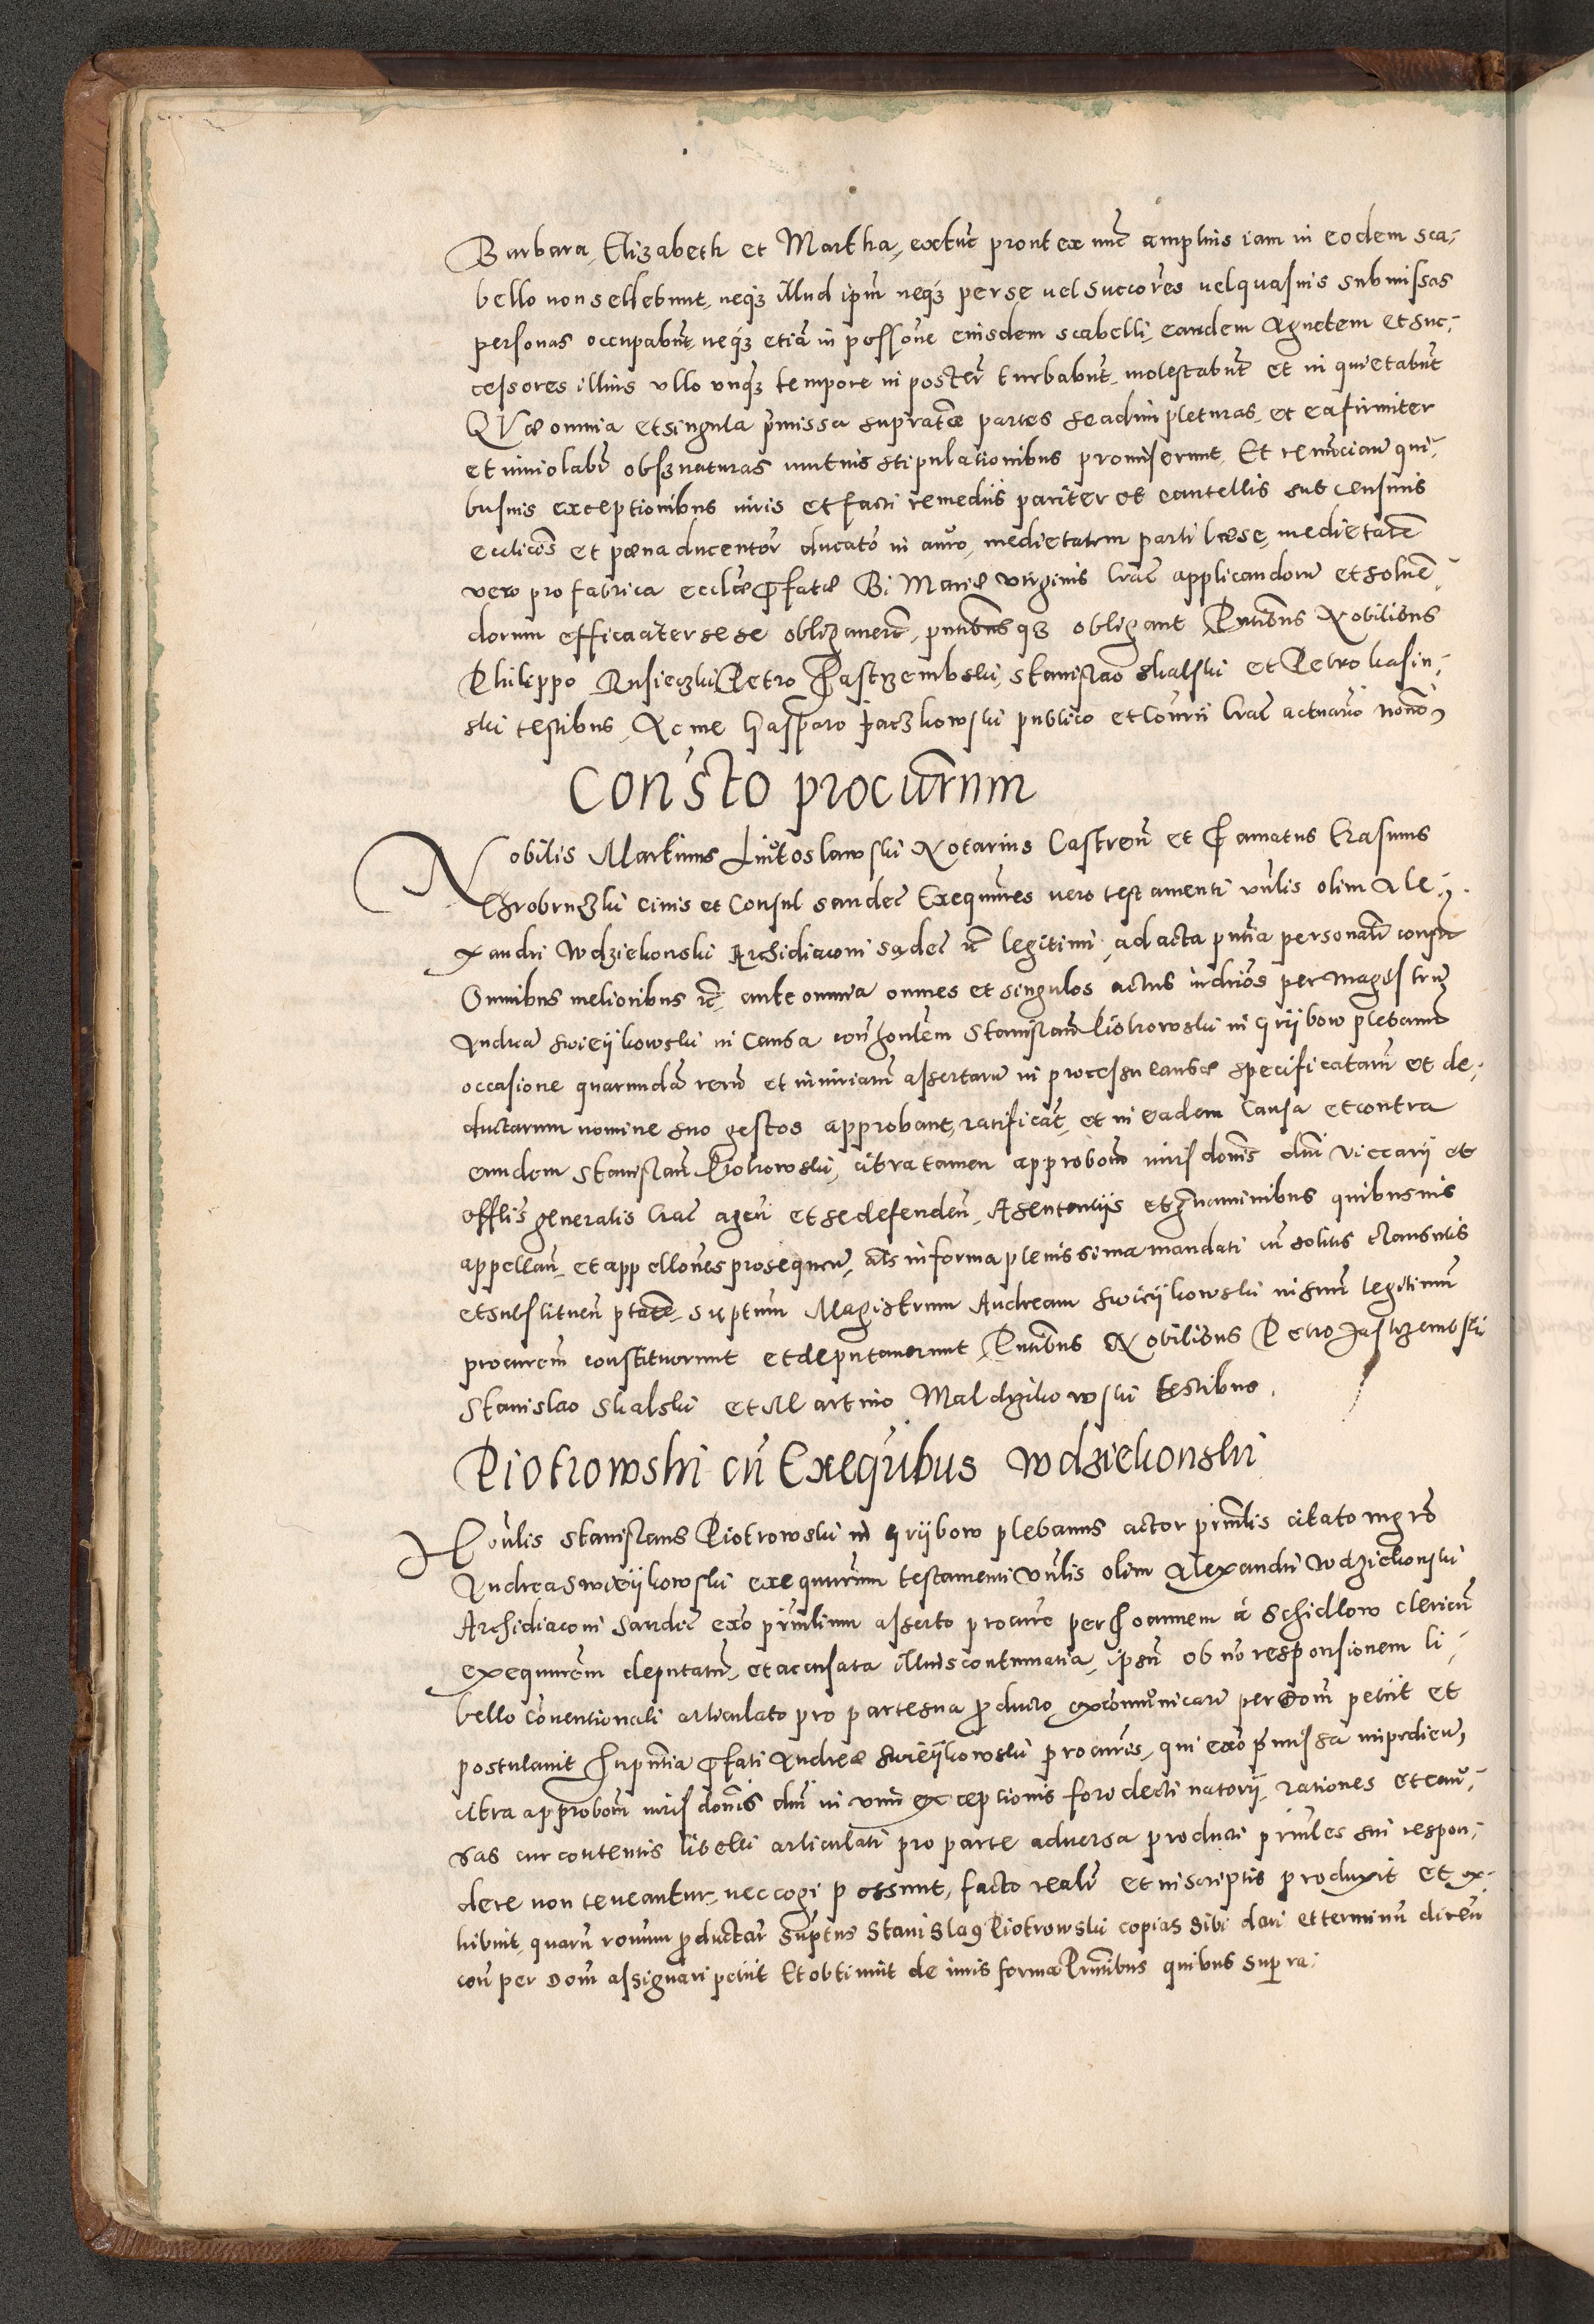 Barbara, Elizabeth et Martha, extuc prout ex nuc amplius iam in eodem sca-
bello non sellebunt, neqz illud ipm neqz per se vel succores vel quasuis submissas
personas occupabut, neqz etia in possone eiusdem scabelli, eandem Agnetem et suc-
cessores illius vllo vnqz tempore in poster turbabut, molestabut et in quietabut
QVae omnia et singula pmissa supratae partes se adimpleturas, et ea firmiter
et inuiolabr obseruaturas mutuis stipulationibus promiserunt, Et renuciaur qui-
busuis exceptionibus iuris et facti remediis pariter et cautellis sub censuris
ecclicis et poena ducentor ducato in auro, medietatem parti laese, medietate
vero pro fabrica ecclae pfatae Bi Mariae virginis Crac applicandoru et solue-
dorum efficaciter sese obligauert, pntibus qz obligant Pntibus Nobilibus
Philippo Rusieczki Petro Jastrzembski, Stanislao Skalski et Petro kasin-
ski testibus, Ac me Gasparo Jaczkowski publico et Courii Crac actuario notario
Consto procurum
Nobilis Martinus Lutoslawski Notarius Castren et Famatus Erasmus
Chrobruczki ciuis et Consul sandec Exequutres vero testamenti vnlis olim Ale-
xandri Wdziekonski Archidiaconi sadec etc legitimi, ad acta pntia personatr consti
Omnibus melioribus etc ante omnia omnes et singulos actus iudrios per Magistrum
Andrea Swieijkowski in Causa contra honlem Stanislau Piotrowski in Grijbow plebanu
occasione quarunda reru et iniuriaru assertaru in processu causae specificataru et de-
ductarum nomine suo gestos approbant, ratificat, et in eadem Causa et contra
eundem Stanislau Piotrowski, citra tamen approbom iurisdonis dni viccarij et
offlis generalis Crac agen et se defenden, A sententiis et grauaminibus quibusuis
appellan, et appellones prosequen, als in forma plenissima mandati cu solitis clausulis
et substituen ptate, suptum Magistrum Andream Swieijkowski in suu legitimu
procurem constituerunt et deputauerunt Pntibus Nobilibus Petro Jastrzembski
Stanislao Skalski et Martino Maldzikowski testibus.
Piotrowski cu Exequribus Wdziekonski
Honlis Stanislaus Piotrowski in Grijbow plebanus actor prinlis citato mgro
Andrea Swieijkowski exequutrum testamenti vnlis olim Alexandri Wdziekonski
Archidiaconi Sandec exo prinlium asserto procure per Joannem a Schidlow clericu
exequurem deputatu, et accusata illius contumatia, ipsu ob no responsionem li-
bello conuentionali articulato pro parte sua pducto excomunicari per Dom petiit et
postulauit In pntia pfati Andreae Swieijkowski procuris, qui exo pmissa inprdien,
citra approbom iurisdonis dni in vim exceptionis fori declinatorij, rationes et cau-
sas cur contentis libelli articulati pro parte aduersa producti prinles sui respon-
dere non teneantur, nec cogi possunt, facto realr et in scriptis produxit et ex-
hibuit, quaru ronum pductar suptus Stanislaus Piotrowski copias sibi dari et terminu dicen
con per Dom assignari petiit Et obtinuit de iuris forma Pntibus quibus supra.